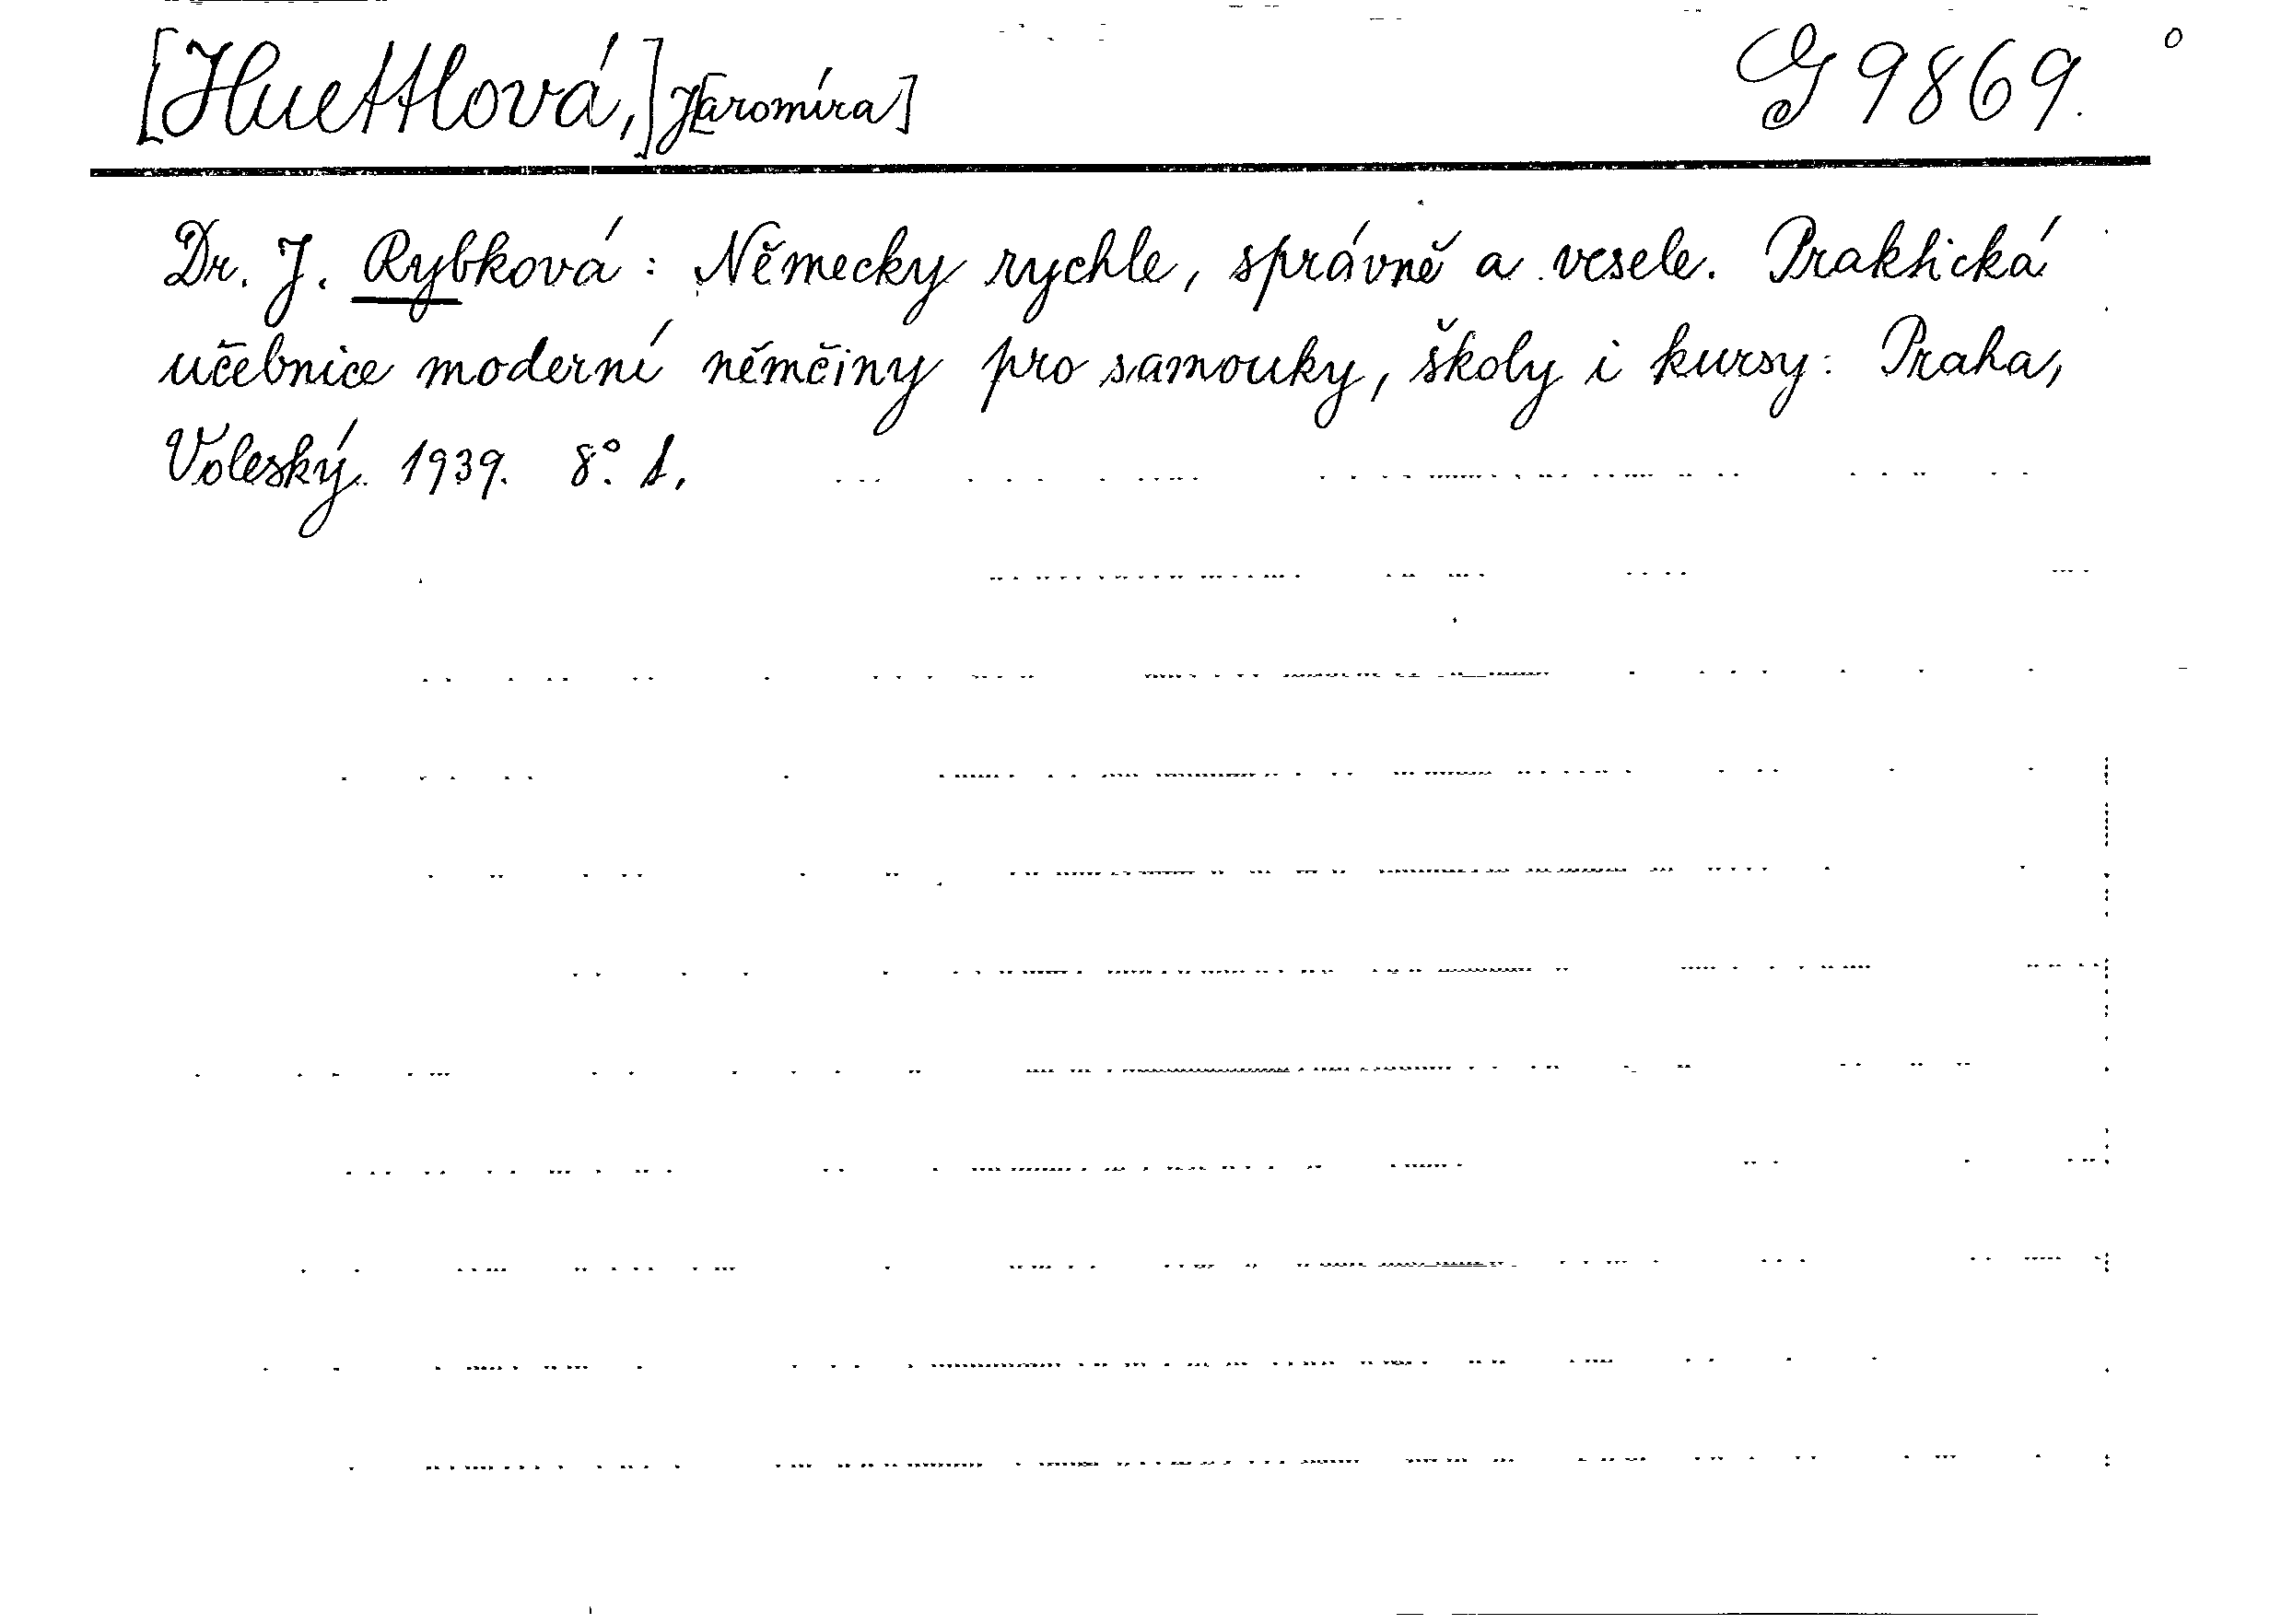 [Huettlová,] J[aromíra] G 9869.
Dr. J. Rybková: Německy rychle, správně a vesele. Praktická
učebnice moderní němčiny pro samouky, školy i kursy: Praha,
Voleský. 1939. 8°. 1.